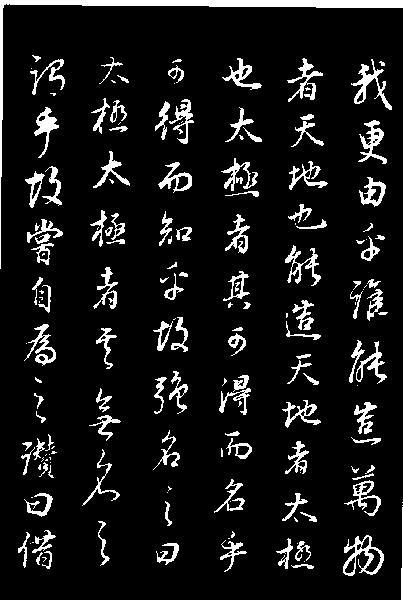 我更由乎誰能造萬物
者天地也能造天地者太極
也太極者其可得而名乎
可得而知乎故強名之曰
太極太極者其無名之
謂乎故嘗自為之讚曰借